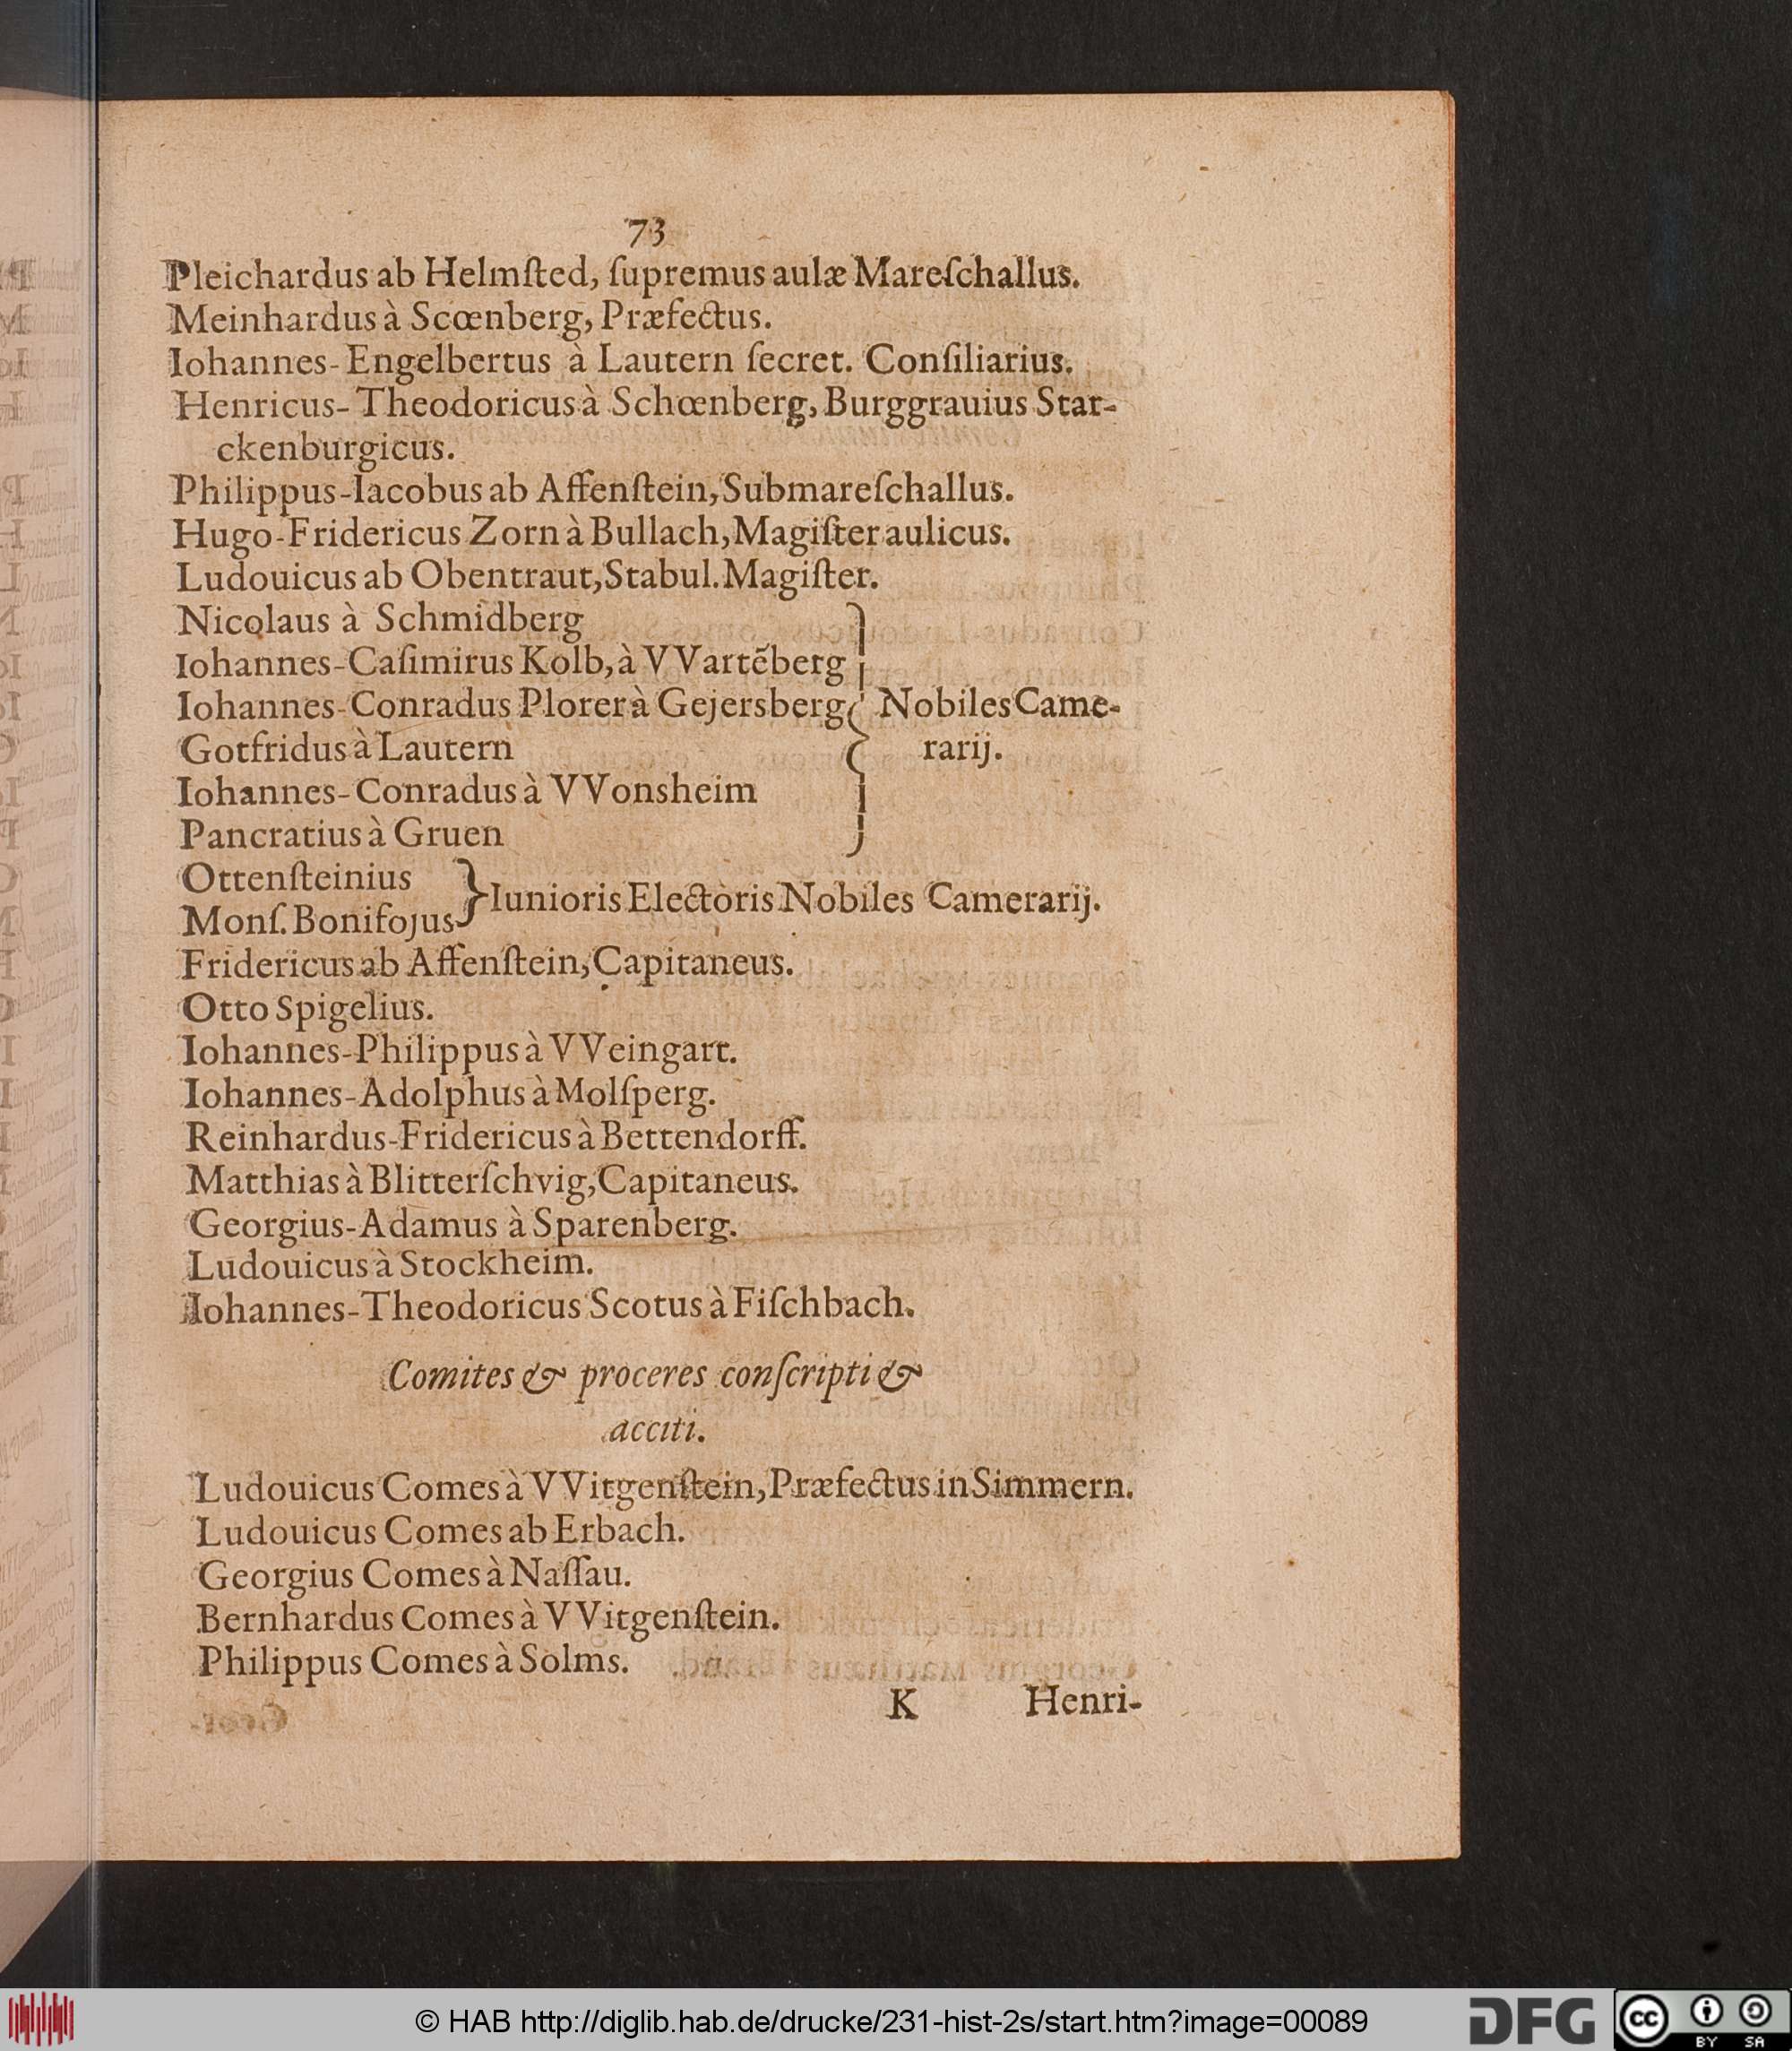 73
Pleichardus ab Helmſted, ſupremus aulæ Mareſchallus.
Meinhardus à Scœnberg, Præfectus.
Iohannes-Engelbertus à Lautern ſecret. Conſiliarius.
Henricus-Theodoricus à Schœnberg, Burggrauius Star-
ckenburgicus.
Philippus-Iacobus ab Affenſtein, Submareſchallus.
Hugo-Fridericus Zorn à Bullach, Magiſter aulicus.
Ludouicus ab Obentraut, Stabul. Magiſter.
Nicolaus à Schmidberg
Iohannes-Caſimirus Kolb, à VVartẽberg
Iohannes-Conradus Plorer à Gejersberg } Nobiles Came-
Gotfridus à Lautern rarij.
Iohannes-Conradus à VVonsheim
Pancratius à Gruen
Ottenſteinius
Monſ. Bonifojus } Iunioris Electoris Nobiles Camerarij.
Fridericus ab Affenſtein, Capitaneus.
Otto Spigelius.
Iohannes-Philippus à VVeingart.
Iohannes-Adolphus à Molſperg.
Reinhardus-Fridericus à Bettendorff.
Matthias à Blitterſchvig, Capitaneus.
Georgius-Adamus à Sparenberg.
Ludouicus à Stockheim.
Iohannes-Theodoricus Scotus à Fiſchbach.
Comites & proceres conſcripti &
acciti.
Ludouicus Comes à VVitgenſtein, Præfectus in Simmern.
Ludouicus Comes ab Erbach.
Georgius Comes à Naſſau.
Bernhardus Comes à VVitgenſtein.
Philippus Comes à Solms.
K Henri-
© HAB http://diglib.hab.de/drucke/231-hist-2s/start.htm?image=00089
DFG
cc BY SA